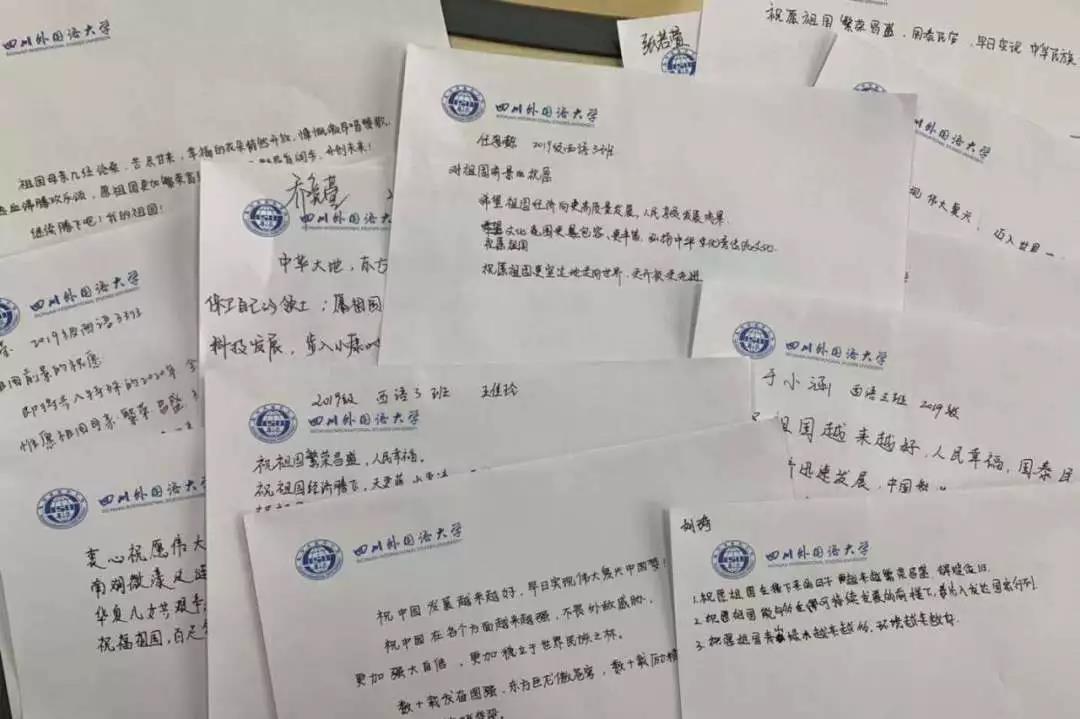 四川外国语大学
祖国母亲几经沧桑,苦尽甘来,幸福的花朵悄然开放,慷慨激昂唱赞歌,
热血沸腾欢乐颂,愿祖国更加繁荣富
继续腾飞吧!我的祖国!
张若萱
祝愿祖国繁荣昌盛,国泰民安,早日实现中华民族
四川外国语大学
现伟大复兴,迈入世界一
四川外国语大学
2019级西语3班
对祖国前景的祝愿
希望祖国经济向更高质量发展,人民享受发展成果.
祝愿祖国文化氛围更显包容、更丰富,弘扬中华文化
祝愿祖国更坚定地走向世界,更开放更先进
中华大地,东方
保卫自己的领土;愿祖国
科技发展,步入小康
四川外国语大学
2019级西语3班
祖国前景的祝愿
即将步入特殊的2020年
惟愿祖国母亲繁荣昌盛
2019级 西语3班 王佳玲
四川外国语大学
祝祖国繁荣昌盛,人民幸福。
祝祖国经济腾飞,天更蓝
四川外国语大学
于小涵 西语三班 2019级
祖国越来越好,人民幸福,国泰民
迅速发展,中国
四川外国语大学
衷心祝愿伟大
华夏儿女共艰辛
祝福祖国,百尺
四川外国语大学
祝中国发展越来越好,早日实现伟大复兴中国梦!
祝中国在各个方面越来越强,不畏外敌威胁,
更加强大自信,更加稳立于世界民族之林。
数十载发奋图强,东方巨龙傲苍穹,数十载励精
刘琦
四川外国语大学
1.祝愿祖国在接下来的日子越来越繁荣昌盛,辉煌依旧.
2.祝愿祖国能够在可持续发展的前提下,早日步入发达国家行列.
3.祝愿祖国青山绿水越来越多,环境越来越好.